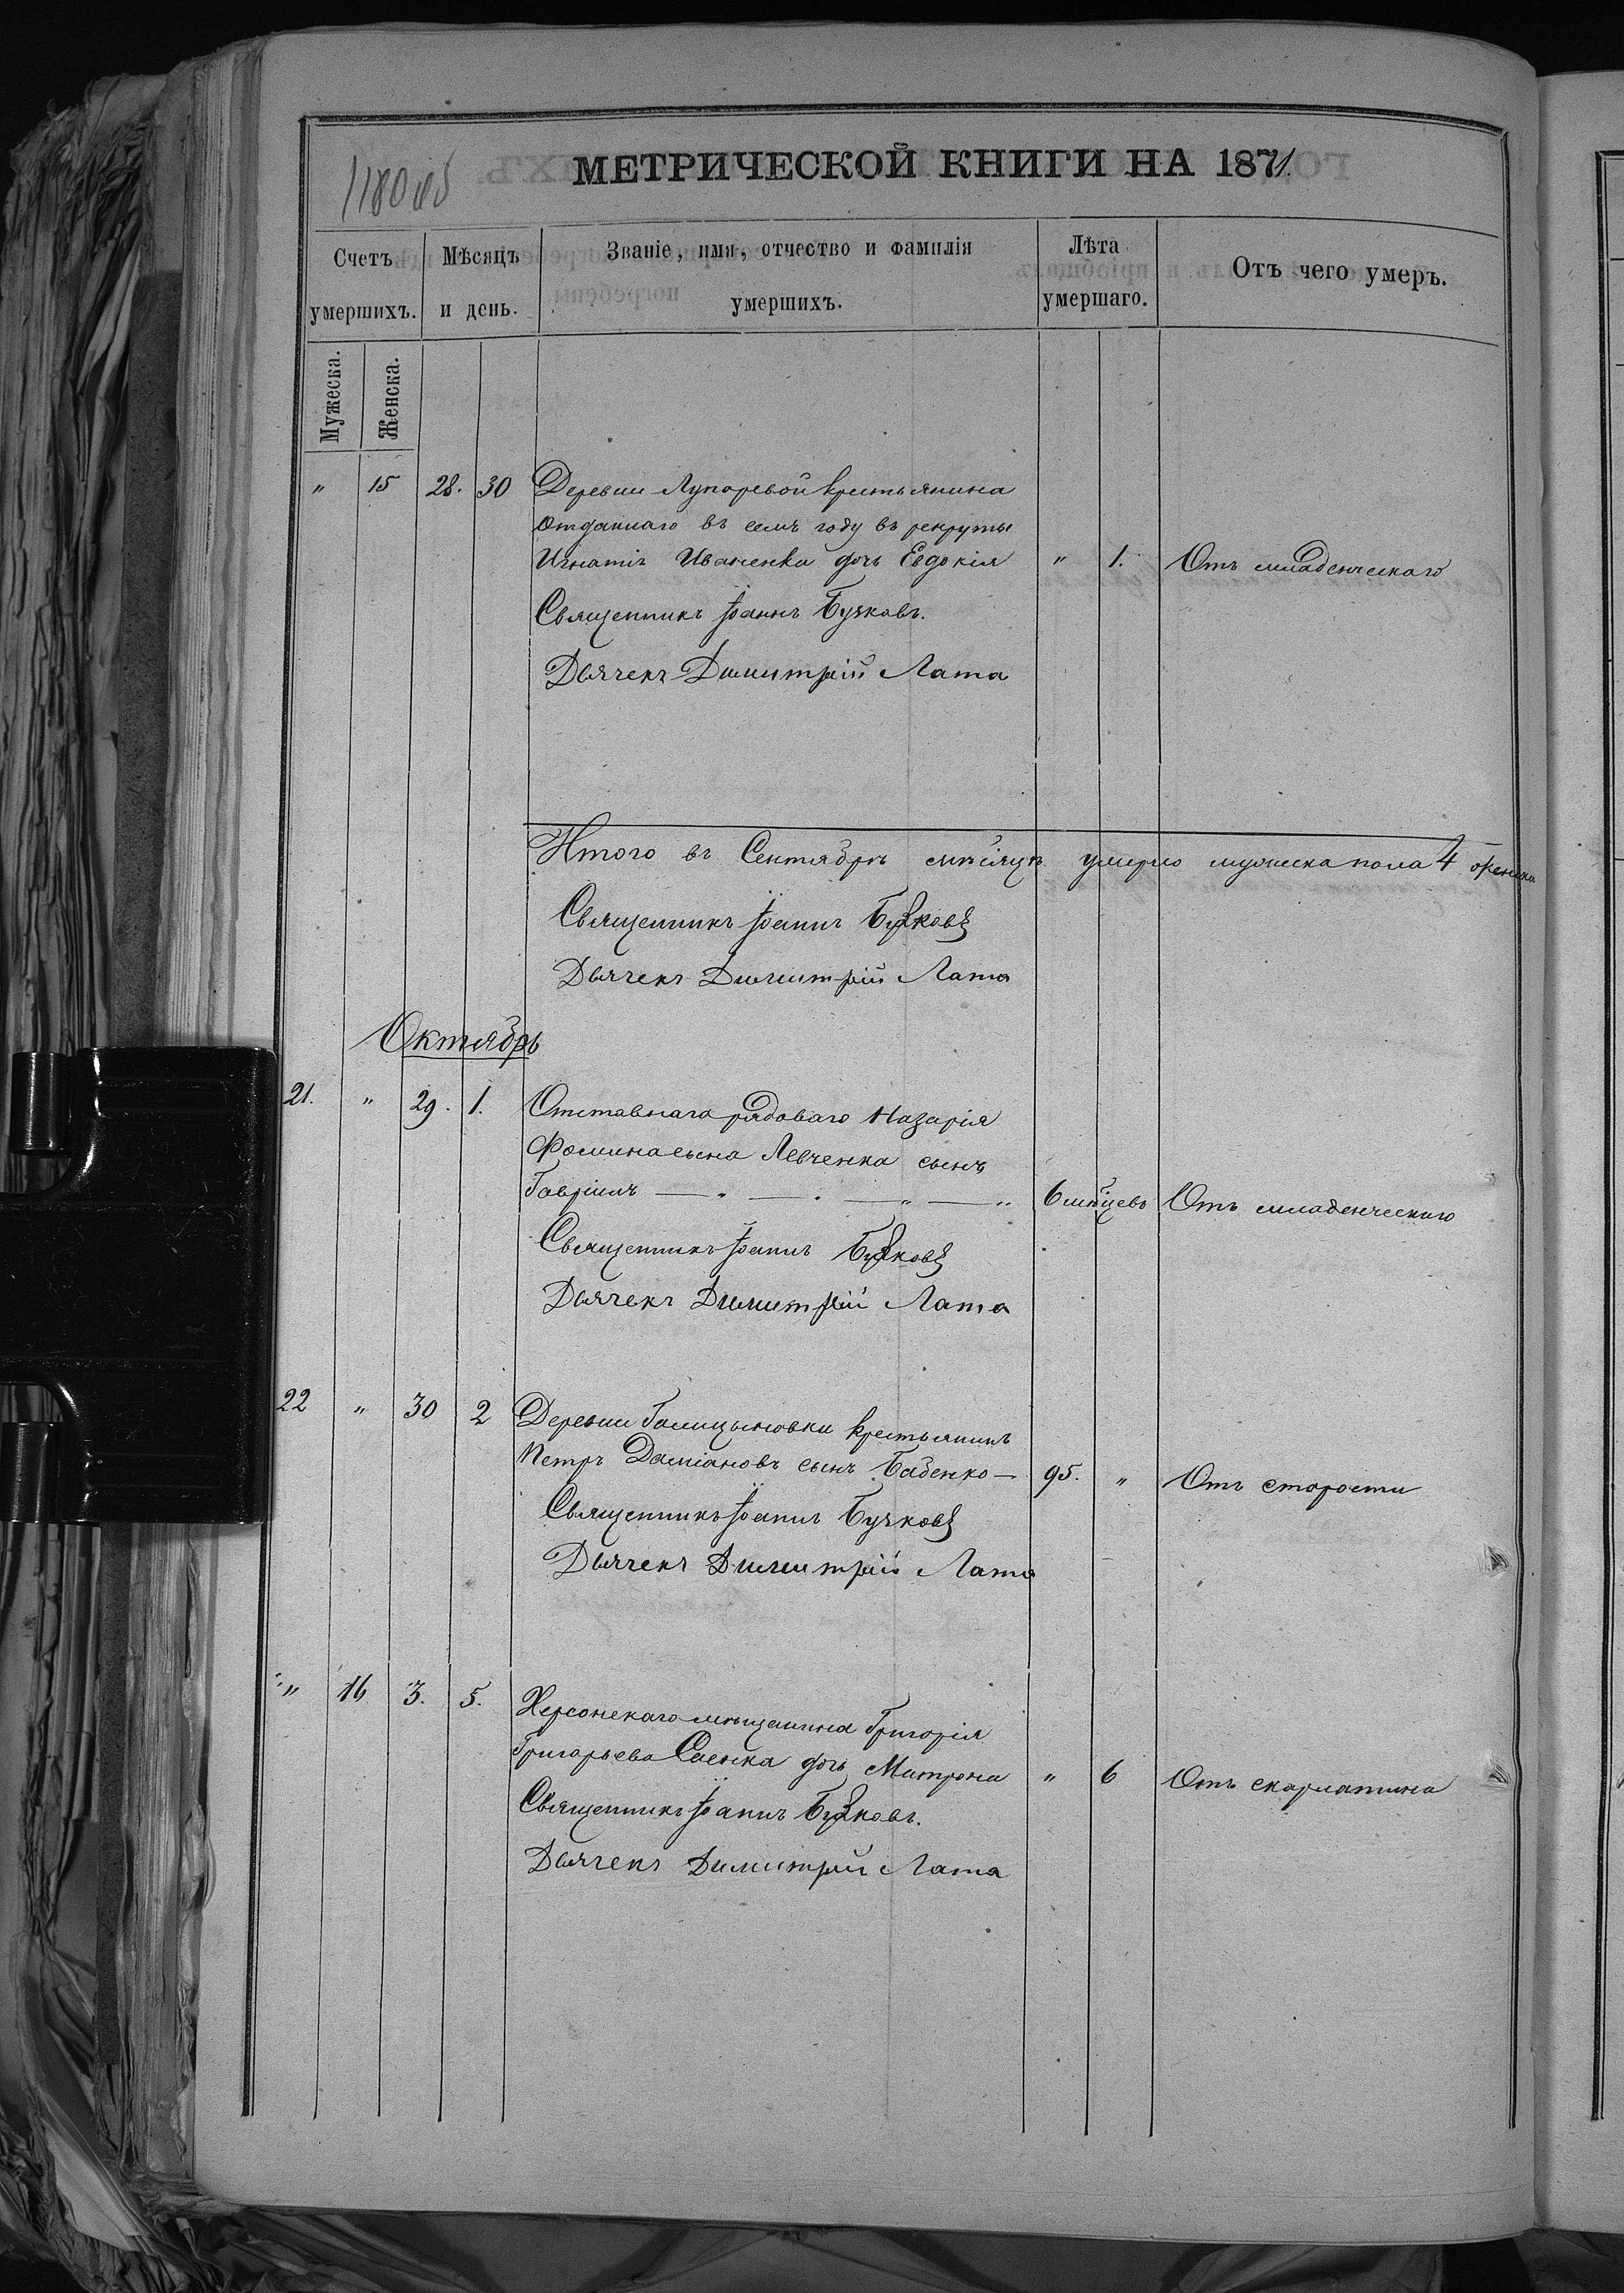 МЕТРИЧЕСКОЙ КНИГИ НА 1871.
Счетъ умершихъ.
Мѣсяцъ и день.
Званіе, имя, отчество и фамилія умершихъ.
Лѣта умершаго.
Отъ чего умеръ.
Мужеска.
Женска.
" 15 28. 30 Деревни Лупаревой крестьянина
отданнаго въ семъ году въ рекруты
Игнатія Иваненка дочь Евдокія " 1. Отъ младенческаго
Священникъ Іоаннъ Бучковъ.
Дьячекъ Димитрій Лата
Итого въ Сентябрѣ мѣсяцѣ умерло мужеска пола 4 женска
Священникъ Іоаннъ Бучковъ
Дьячекъ Димитрій Лата
Октябрь
21. " 29. 1. Отставнаго рядоваго Назарія
Фомина сына Левченка сынъ
Гавріилъ — " — " — " — " 6 мѣсцевъ Отъ младенческаго
Священникъ Іоаннъ Бучковъ
Дьячекъ Димитрій Лата
22 " 30 2 Деревни Галицыновки крестьянинъ
Петръ Даміановъ сынъ Бабенко — 95. " Отъ старости
Священникъ Іоаннъ Бучковъ
Дьячекъ Димитрій Лата
" 16 3. 5. Херсонскаго мѣщанина Григорія
Григорьева Саенка дочь Матрона " 6 Отъ скарлатина
Священникъ Іоаннъ Бучковъ.
Дьячекъ Димитрій Лата